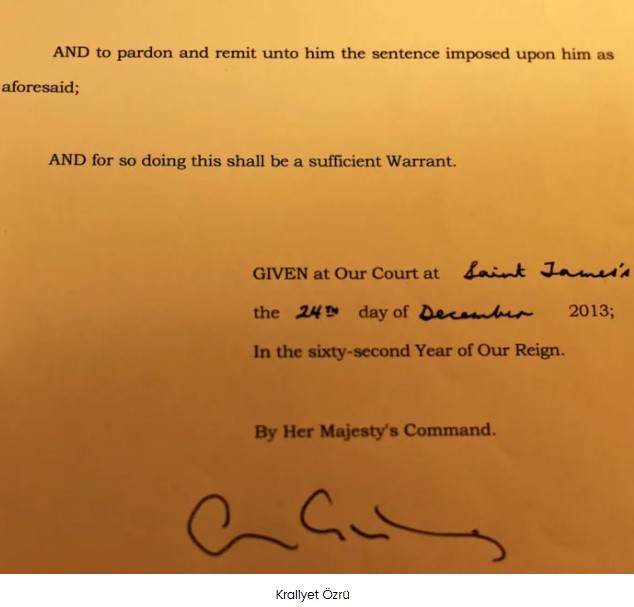 AND to pardon and remit unto him the sentence imposed upon him as
aforesaid;
AND for so doing this shall be a sufficient Warrant.
GIVEN at Our Court at Saint James's
the 24TH day of December 2013;
In the sixty-second Year of Our Reign.
By Her Majesty's Command.
Krallyet Özrü